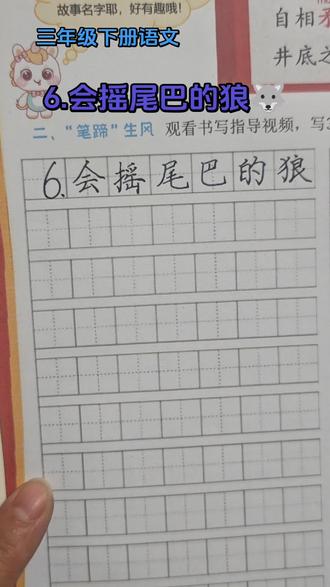 故事名字耶，好有趣哦！
自相矛
三年级下册语文
井底之
6.会摇尾巴的狼
二、“笔蹄”生风 观看书写指导视频，写
6.会摇尾巴的狼